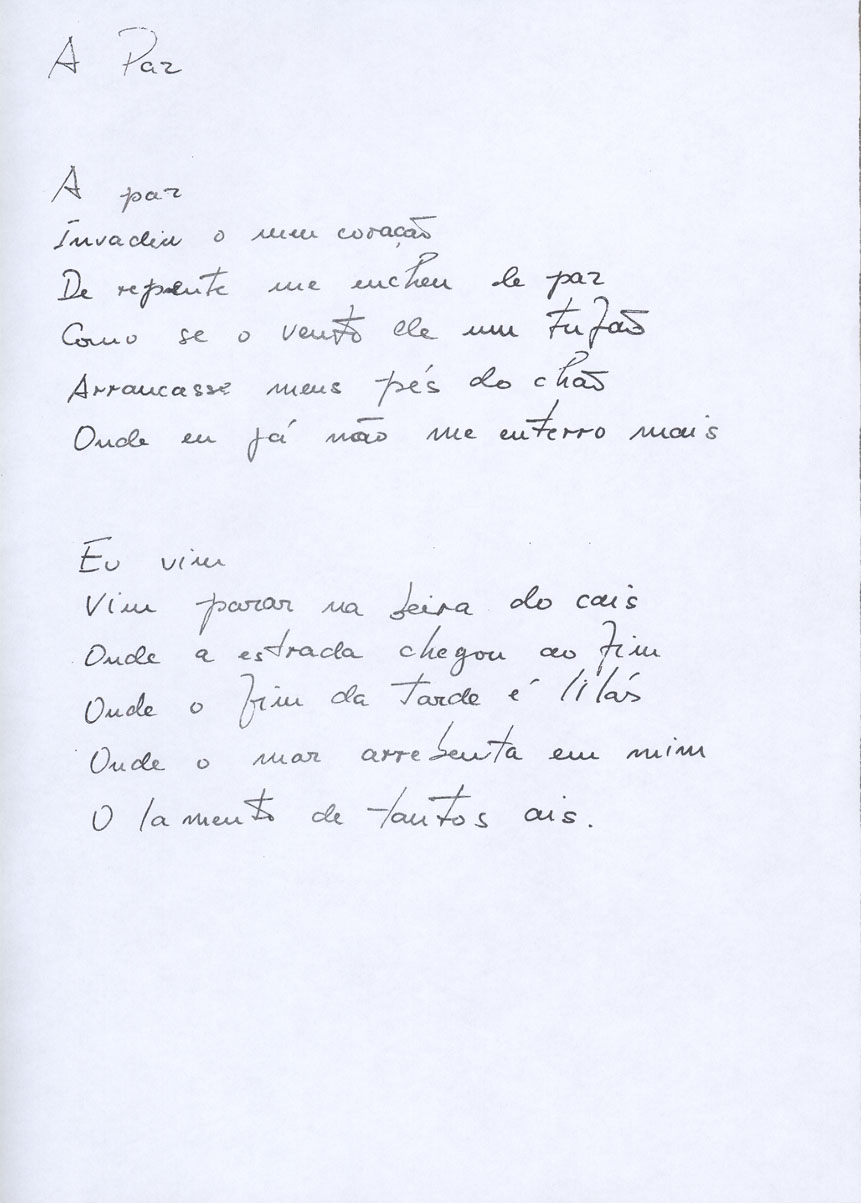 A Paz
A paz
Invadiu o meu coração
De repente me encheu de paz
Como se o vento de um tufão
Arrancasse meus pés do chão
Onde eu já não me enterro mais
Eu vim
Vim parar na beira do cais
Onde a estrada chegou ao fim
Onde o fim da tarde é lilás
Onde o mar arrebenta em mim
O lamento de tantos ais.